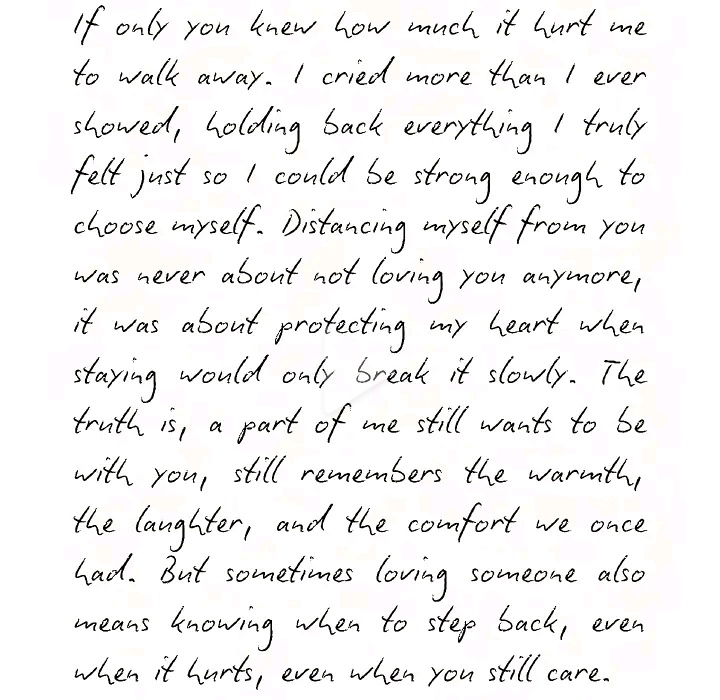 If only you knew how much it hurt me
to walk away. I cried more than I ever
showed, holding back everything I truly
felt just so I could be strong enough to
choose myself. Distancing myself from you
was never about not loving you anymore,
it was about protecting my heart when
staying would only break it slowly. The
truth is, a part of me still wants to be
with you, still remembers the warmth,
the laughter, and the comfort we once
had. But sometimes loving someone also
means knowing when to step back, even
when it hurts, even when you still care.